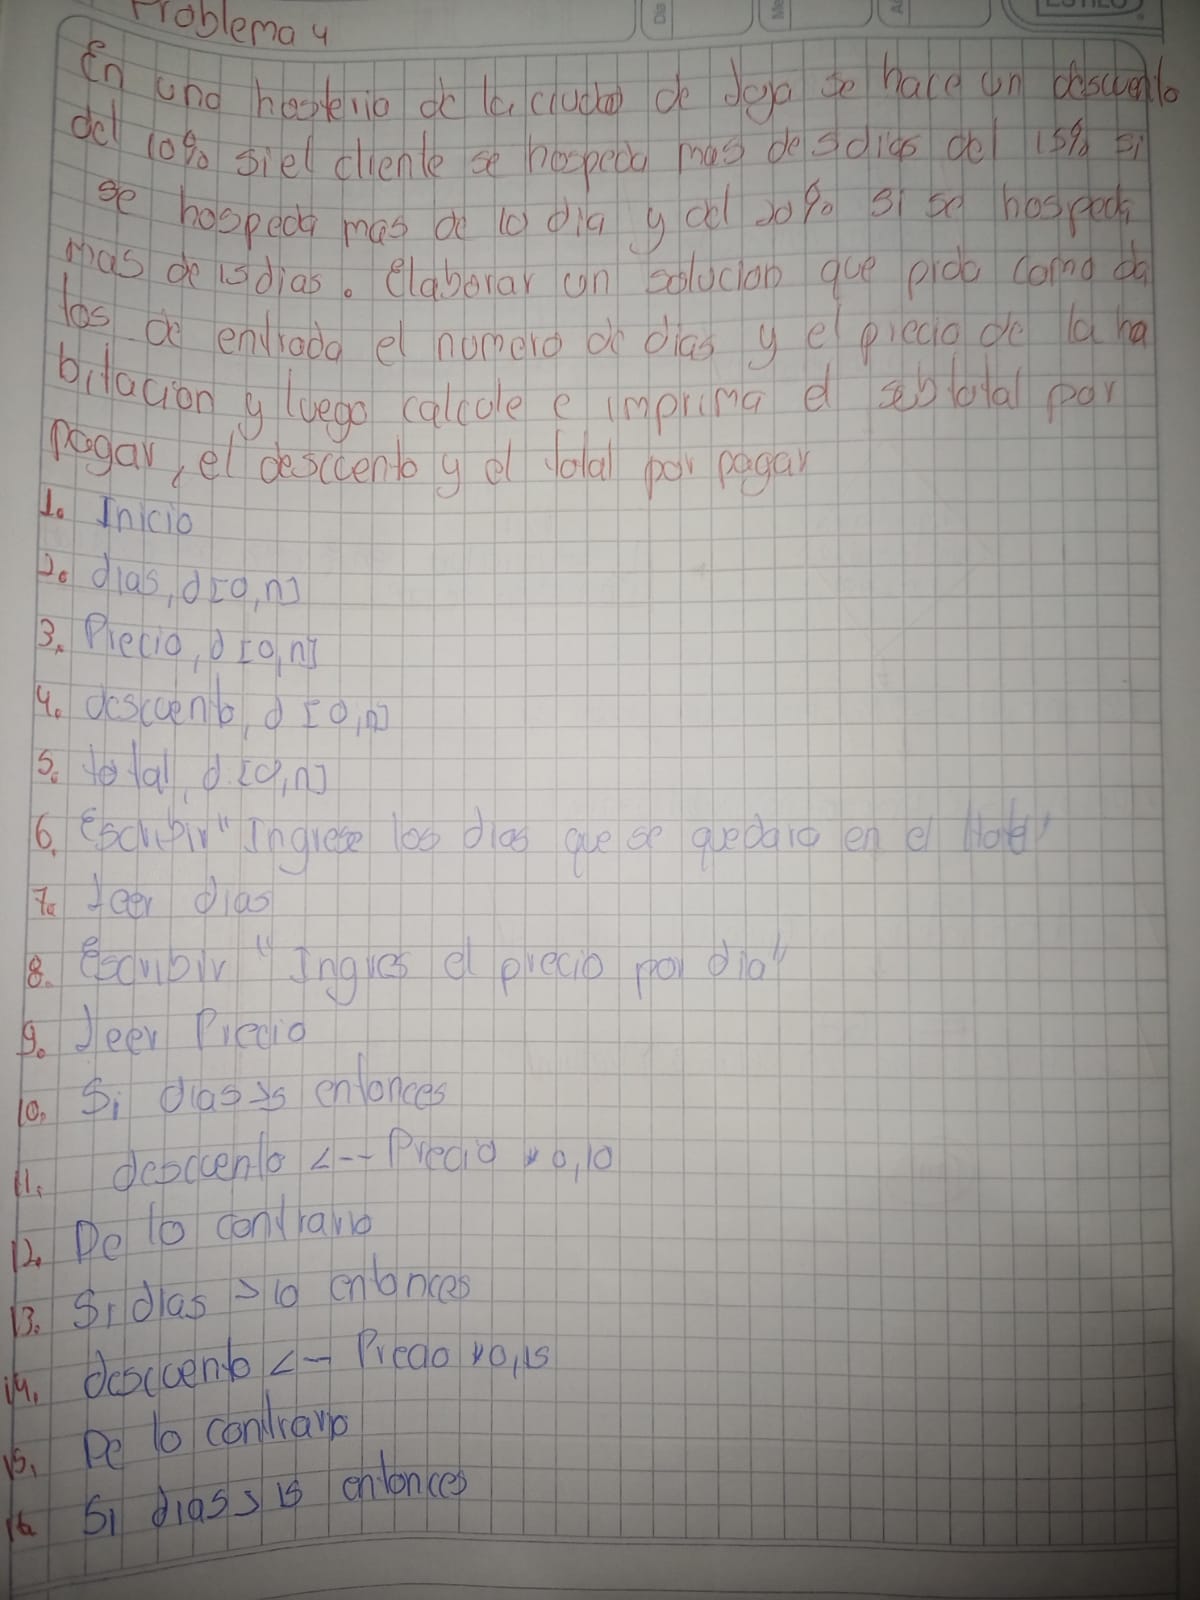 Problema 4
En una hosteria de la ciudad de Loja se hace un descuento
del 10% si el cliente se hospeda mas de 5 dias del 15% si
se hospeda mas de 10 dia y del 20% si se hospeda
mas de 15 dias. Elaborar un solucion que pida como da
tos de entrada el numero de dias y el precio de la ha
bitacion y luego calcole e imprima el subtotal por
pagar, el desccento y el total por pagar
1. Inicio
2. dias, d[0,n]
3. Precio, d[0,n]
4. descuento, d[0,n]
5. total, d[0,n]
6. Escribir "Ingrese los dias que se quedara en el Hotel"
7. Leer dias
8. Escribir "Ingres el precio por dia"
9. Leer Precio
10. Si dias>5 entonces
11. desccento <-- Precio * 0,10
12. De lo contrario
13. Si dias >10 entonces
14. desccento <-- Precio *0,15
15. De lo contrario
16. Si dias> 15 entonces